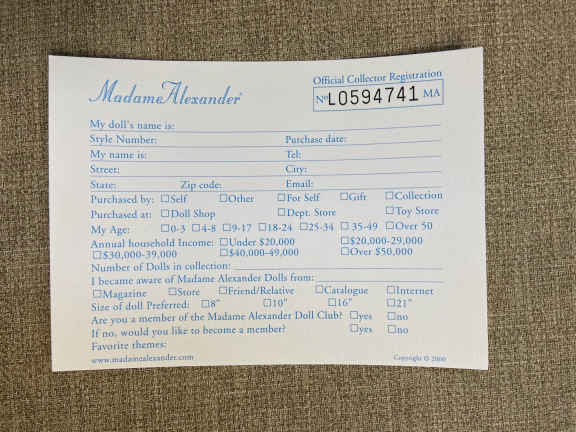 Madame Alexander®
Official Collector Registration
Nº L0594741 MA
My doll's name is:
Style Number: Purchase date:
My name is: Tel:
Street: City:
State: Zip code: Email:
Purchased by: ☐Self ☐Other ☐For Self ☐Gift ☐Collection
Purchased at: ☐Doll Shop ☐Dept. Store ☐Toy Store
My Age: ☐0-3 ☐4-8 ☐9-17 ☐18-24 ☐25-34 ☐35-49 ☐Over 50
Annual household Income: ☐Under $20,000 ☐$20,000-29,000
☐$30,000-39,000 ☐$40,000-49,000 ☐Over $50,000
Number of Dolls in collection:
I became aware of Madame Alexander Dolls from:
☐Magazine ☐Store ☐Friend/Relative ☐Catalogue ☐Internet
Size of doll Preferred: ☐8" ☐10" ☐16" ☐21"
Are you a member of the Madame Alexander Doll Club? ☐yes ☐no
If no, would you like to become a member? ☐yes ☐no
Favorite themes:
www.madamealexander.com Copyright © 2000